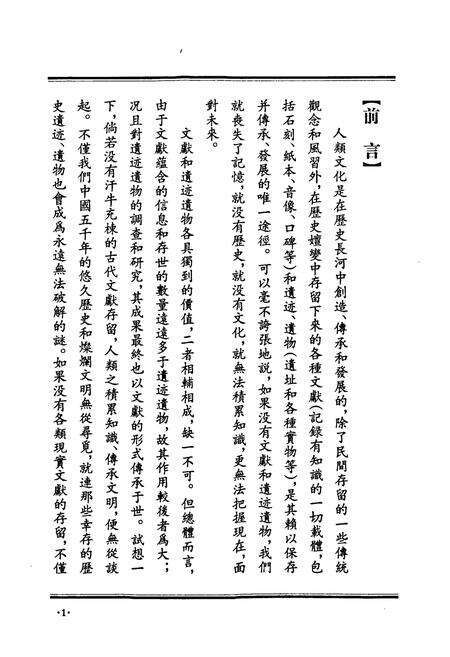 【前言】
人類文化是在歷史長河中創造、傳承和發展的，除了民間存留的一些傳統
觀念和風習外，在歷史嬗變中存留下來的各種文獻（記錄有知識的一切載體，包
括石刻、紙本、音像、口碑等）和遺迹、遺物（遺址和各種實物等），是其賴以保存
并傳承、發展的唯一途徑。可以毫不誇張地説，如果没有文獻和遺迹遺物，我們
就喪失了記憶，就没有歷史，就没有文化，就無法積累知識，更無法把握現在，面
對未來。
文獻和遺迹遺物各具獨到的價值，二者相輔相成，缺一不可。但總體而言，
由于文獻蘊含的信息和存世的數量遠遠多于遺迹遺物，故其作用較後者爲大；
况且對遺迹遺物的調查和研究，其成果最終也以文獻的形式傳承于世。試想一
下，倘若没有汗牛充棟的古代文獻存留，人類之積累知識、傳承文明，便無從談
起。不僅我們中國五千年的悠久歷史和燦爛文明無從尋覓，就連那些幸存的歷
史遺迹、遺物也會成爲永遠無法破解的謎。如果没有各類現實文獻的存留，不僅
·1·